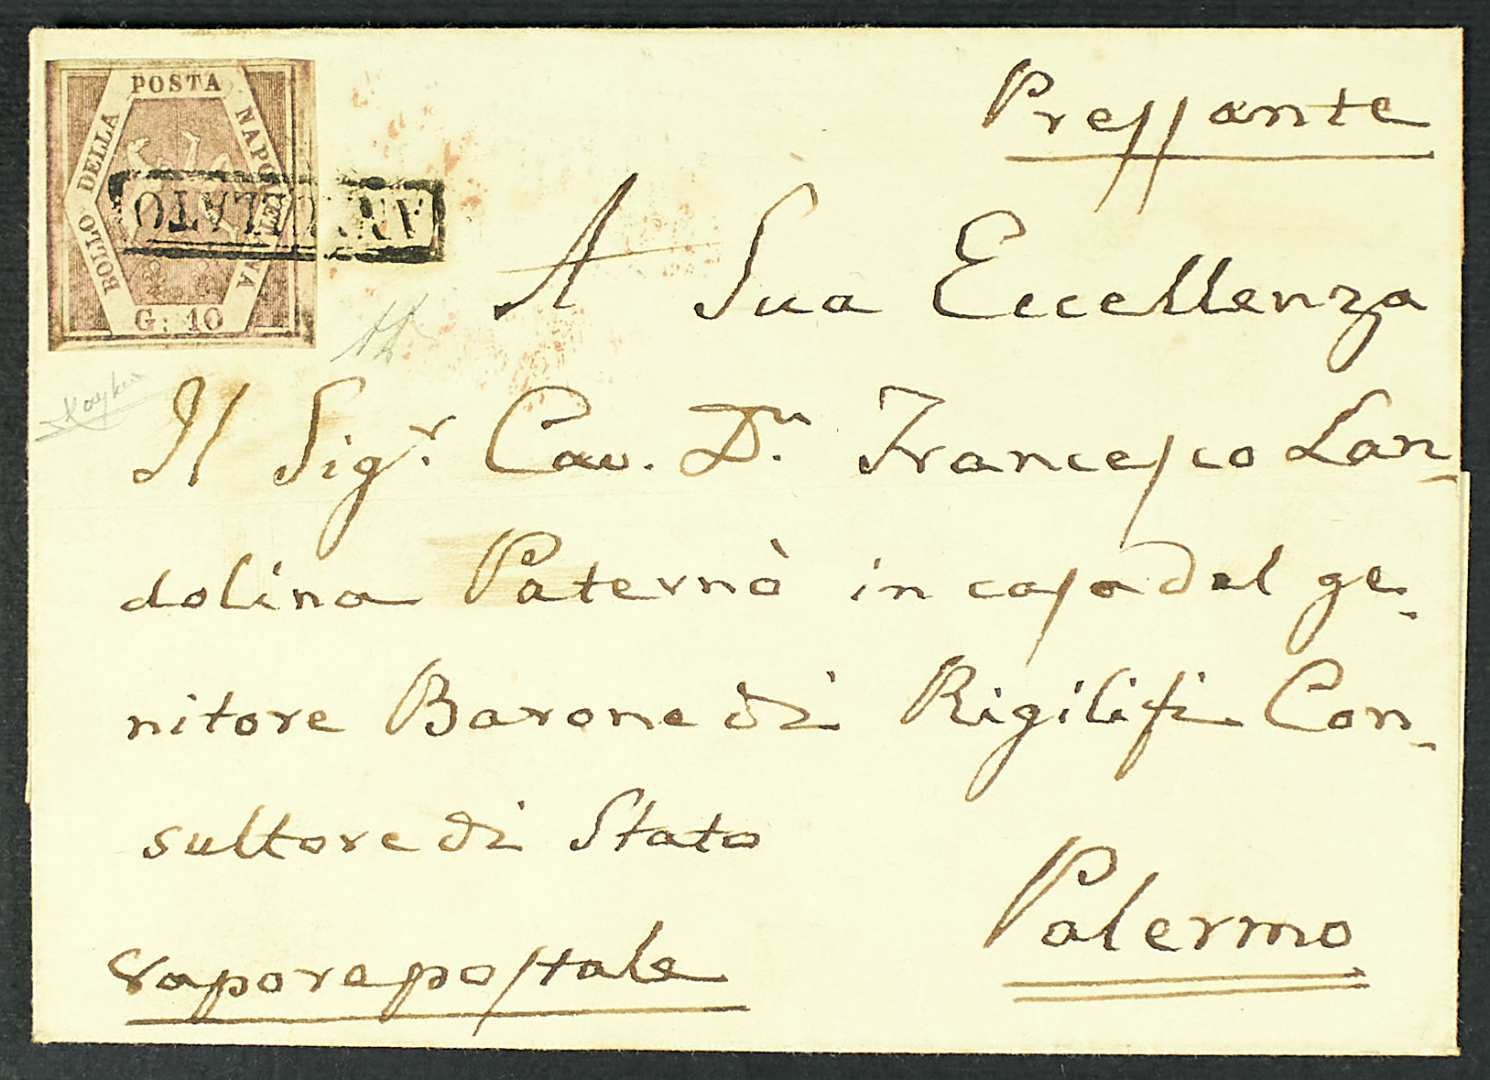 BOLLO DELLA POSTA NAPOLETANA
G: 10
ANNULLATO
Pressante
A Sua Eccellenza
Il Sigr. Cav. Dn. Francesco Lan-
dolina Paternò in casa del ge-
nitore Barone di Rigilifi Con-
sultore di Stato
Palermo
Vapore postale